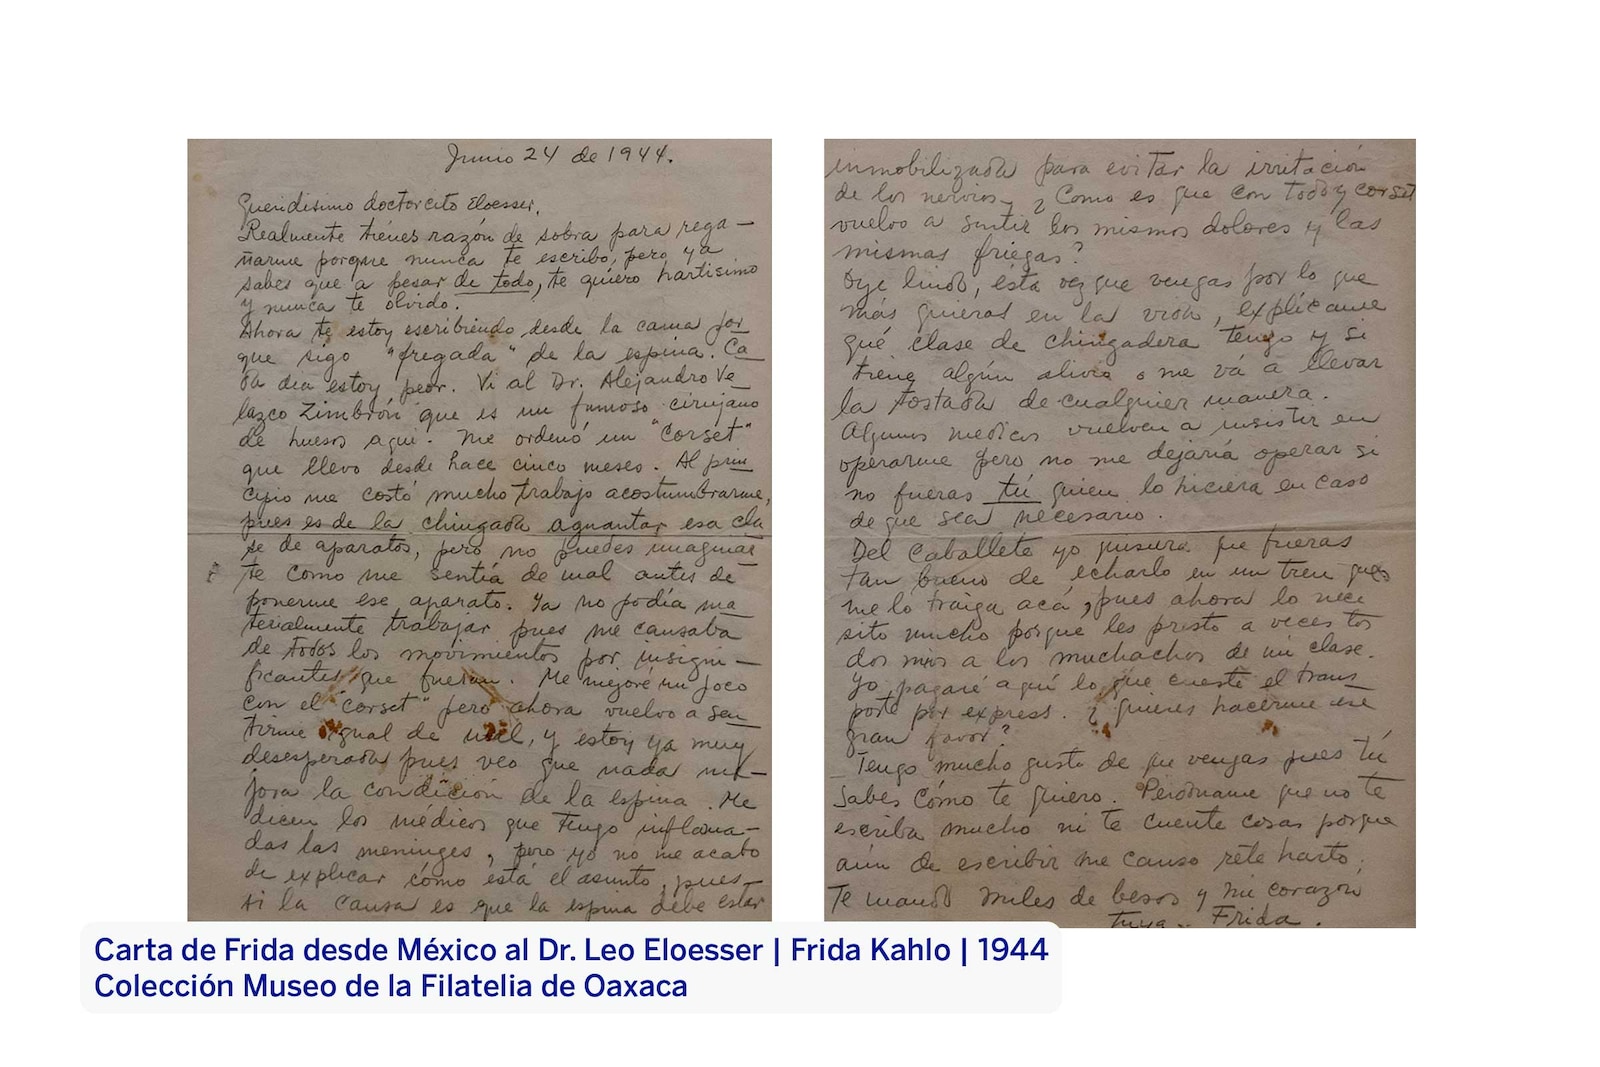 Junio 24 de 1944.
Queridisimo doctorcito Eloesser.
Realmente tiénes razón de sobra para rega-
ñarme porque nunca te escribo, pero ya
sabes que a pesar de todo, te quiero hartisimo
y nunca te olvido.
Ahora te estoy escribiendo desde la cama por
que sigo "fregada" de la espina. Ca
da dia estoy peor. Vi al Dr. Alejandro Ve
lazco Zimbrón que es un famoso cirujano
de huesos aqui. Me ordenó un "corset"
que llevo desde hace cinco meses. Al prin
cipio me costó mucho trabajo acostumbrarme,
pues es de la chingada aguantar esa cla
se de aparatos, pero no puedes imaginar
te como me sentía de mal antes de
ponerme ese aparato. Ya no podía ma
terialmente trabajar pues me causaba
de todos los movimientos por insigni-
ficantes que fueran. Me mejoré un poco
con el "corset" pero ahora vuelvo a sen
tirme igual de mal, y estoy ya muy
desesperada pues veo que nada me-
jora la condición de la espina. Me
dicen los médicos que tengo inflama-
das las meninges, pero yo no me acabo
de explicar cómo está el asunto, pues
si la causa es que la espina debe estar
inmobilizada para evitar la irritación
de los nervios, ¿Como es que con todo y corset
vuelvo a sentir los mismos dolores y las
mismas friegas?
Oye lindo, ésta vez que vengas por lo que
más quieras en la vida, explícame
qué clase de chingadera tengo y si
tiene algún alivio o me vá a llevar
la tostada de cualquier manera.
Algunos medicos vuelven a insistir en
operarme pero no me dejaría operar si
no fueras tú quien lo hiciera en caso
de que sea necesario.
Del caballete yo quisiera que fueras
tan bueno de echarlo en un tren que
me lo traiga acá, pues ahora lo nece
sito mucho porqué les presto a veces los
dos mios a los muchachos de mi clase.
Yo pagaré aquí lo que cueste el trans
porte por express. ¿Quieres hacerme ese
gran favor?
Tengo mucho gusto de que vengas pues tú
sabes cómo te quiero. Perdóname que no te
escriba mucho ni te cuente cosas porque
aún de escribir me canso réte harto.
Te mando miles de besos y mi corazón
tuya- Frida.
Carta de Frida desde México al Dr. Leo Eloesser | Frida Kahlo | 1944
Colección Museo de la Filatelia de Oaxaca